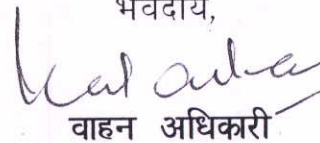 भवदीय,
वाहन अधिकारी